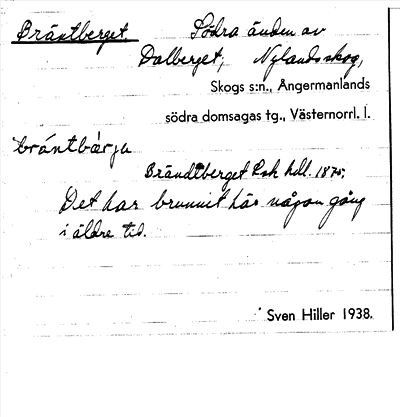 Bräntberget. Södra änden av
Dalberget, Nylandsskog,
Skogs s:n., Ångermanlands
södra domsagas tg., Västernorrl. l.
bräntbärju
Brändtberget Lsk hdl. 1875;
Det har brunnit här någon gång
i äldre tid.
Sven Hiller 1938.